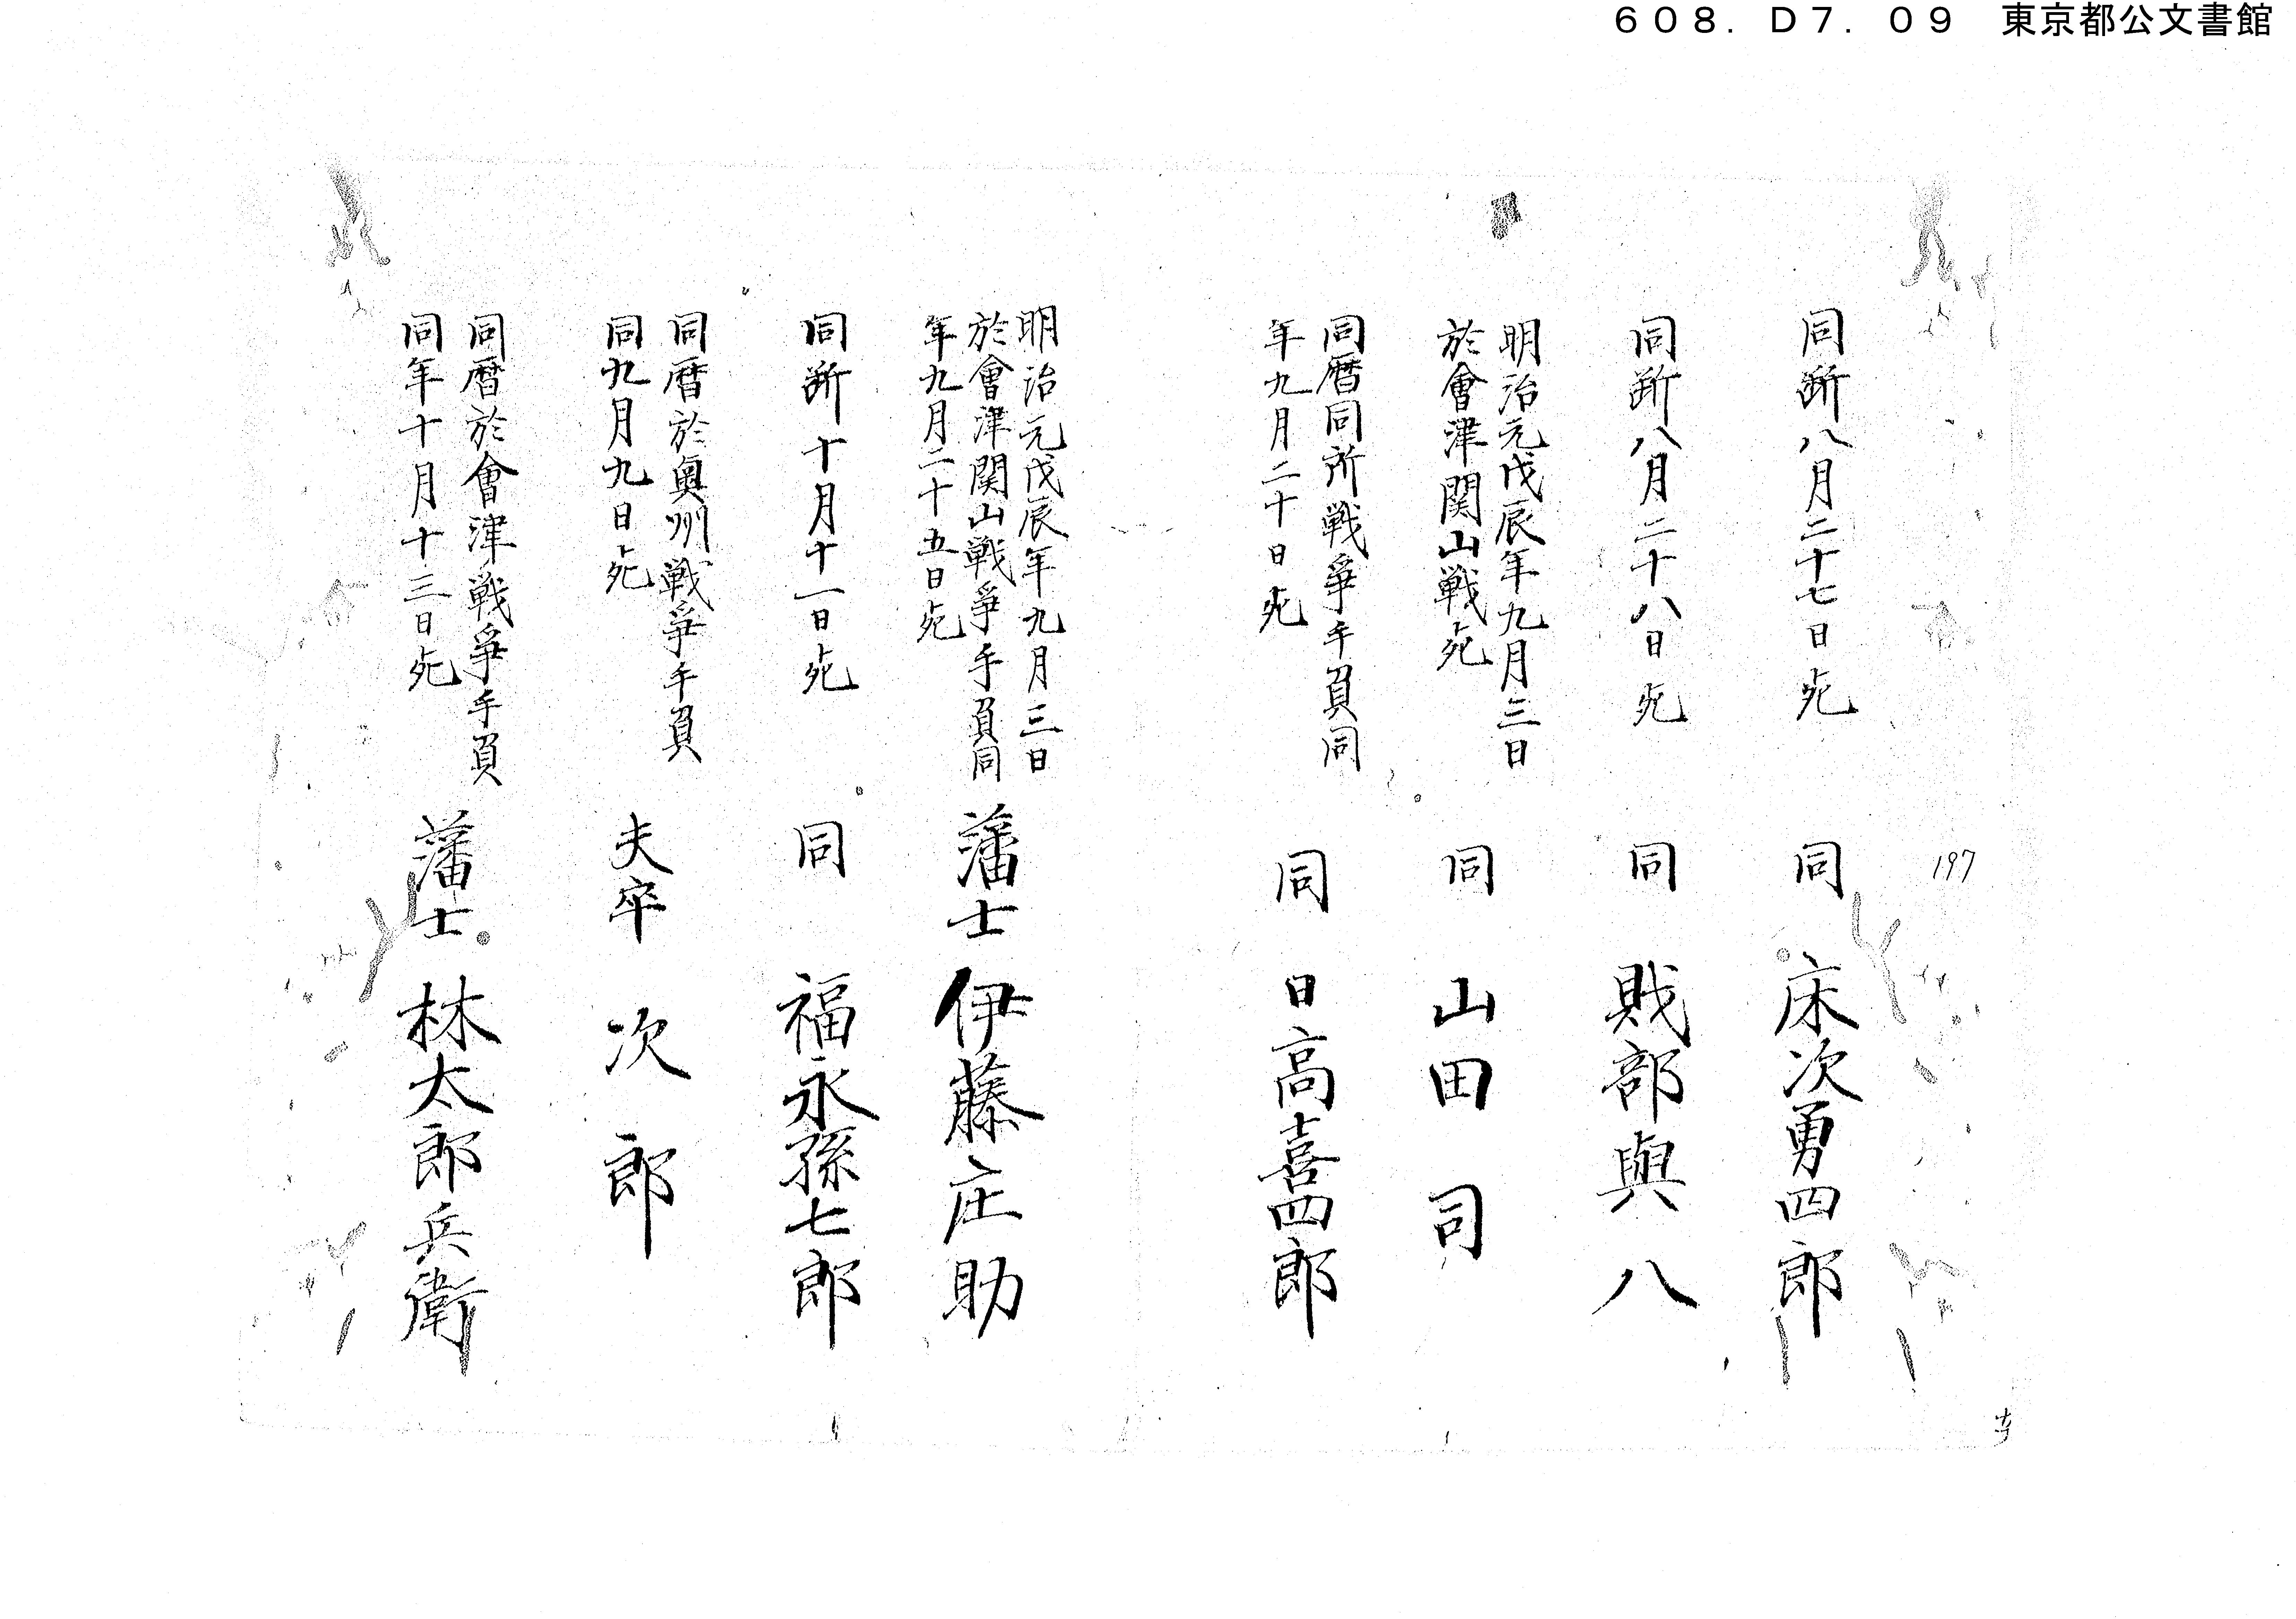 608. D7. 09 東京都公文書館
197
同断八月二十七日死
同 床次勇四郎
同断八月二十八日死
同 財部與八
明治元戊辰年九月三日
於會津関山戦死
同 山田司
同暦同所戦争手負同
年九月二十日死
同 日高喜四郎
明治元戊辰年九月三日
於會津関山戦争手負同
年九月二十五日死
藩士 伊藤庄助
同断十月十一日死
同 福永孫七郎
同暦於奥州戦争手負
同九月九日死
夫卒 次郎
同暦於會津戦争手負
同年十月十三日死
藩士 林太郎兵衛